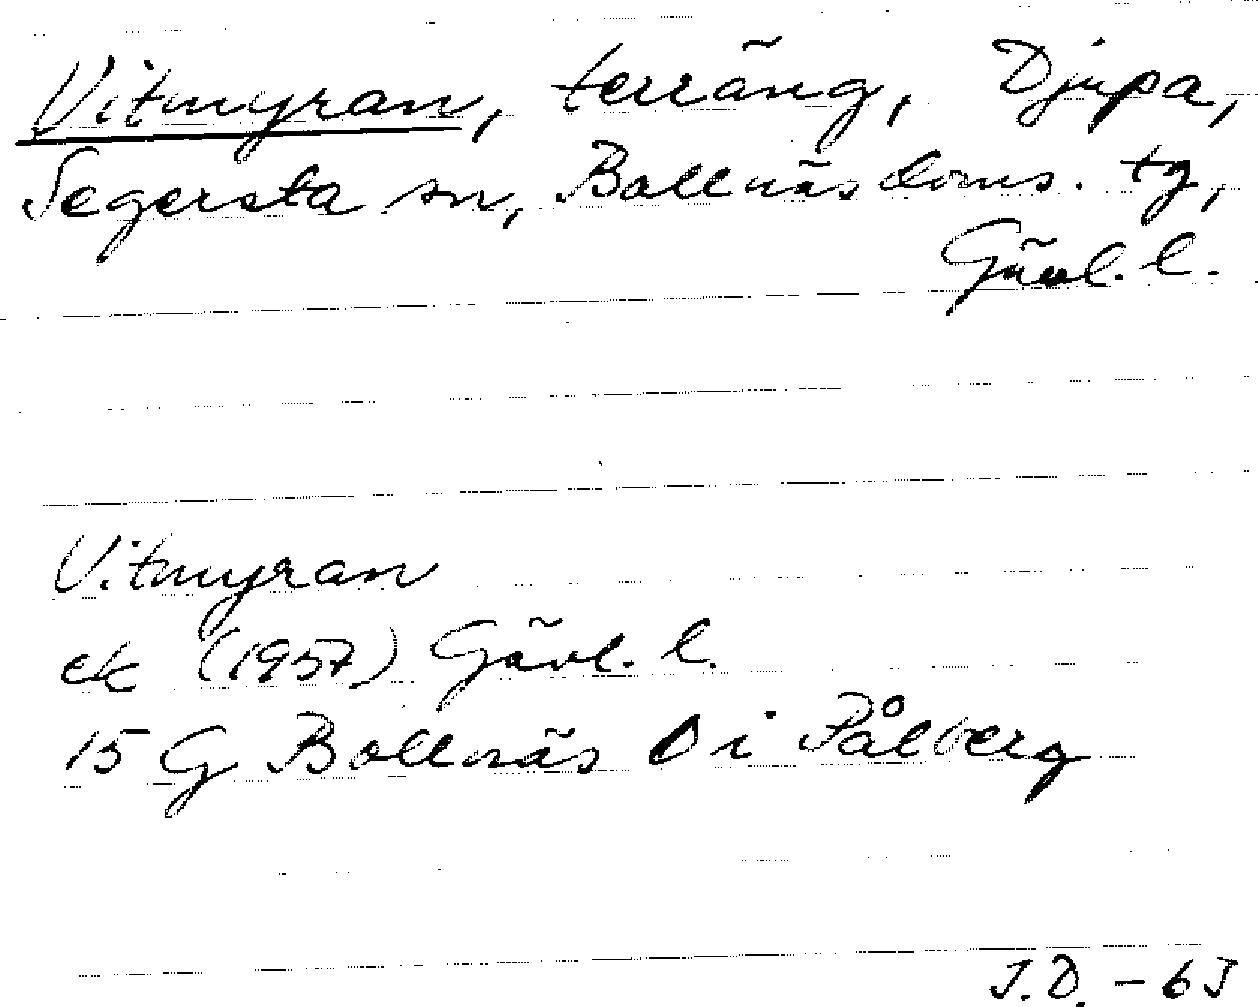 Vitmyran, terräng, Djupa,
Segersta sn, Bollnäs doms. tg,
Gävl. l.
Vitmyran
ek (1957) Gävl. l.
15 G Bollnäs 0 i Pålberg
J.D. - 63